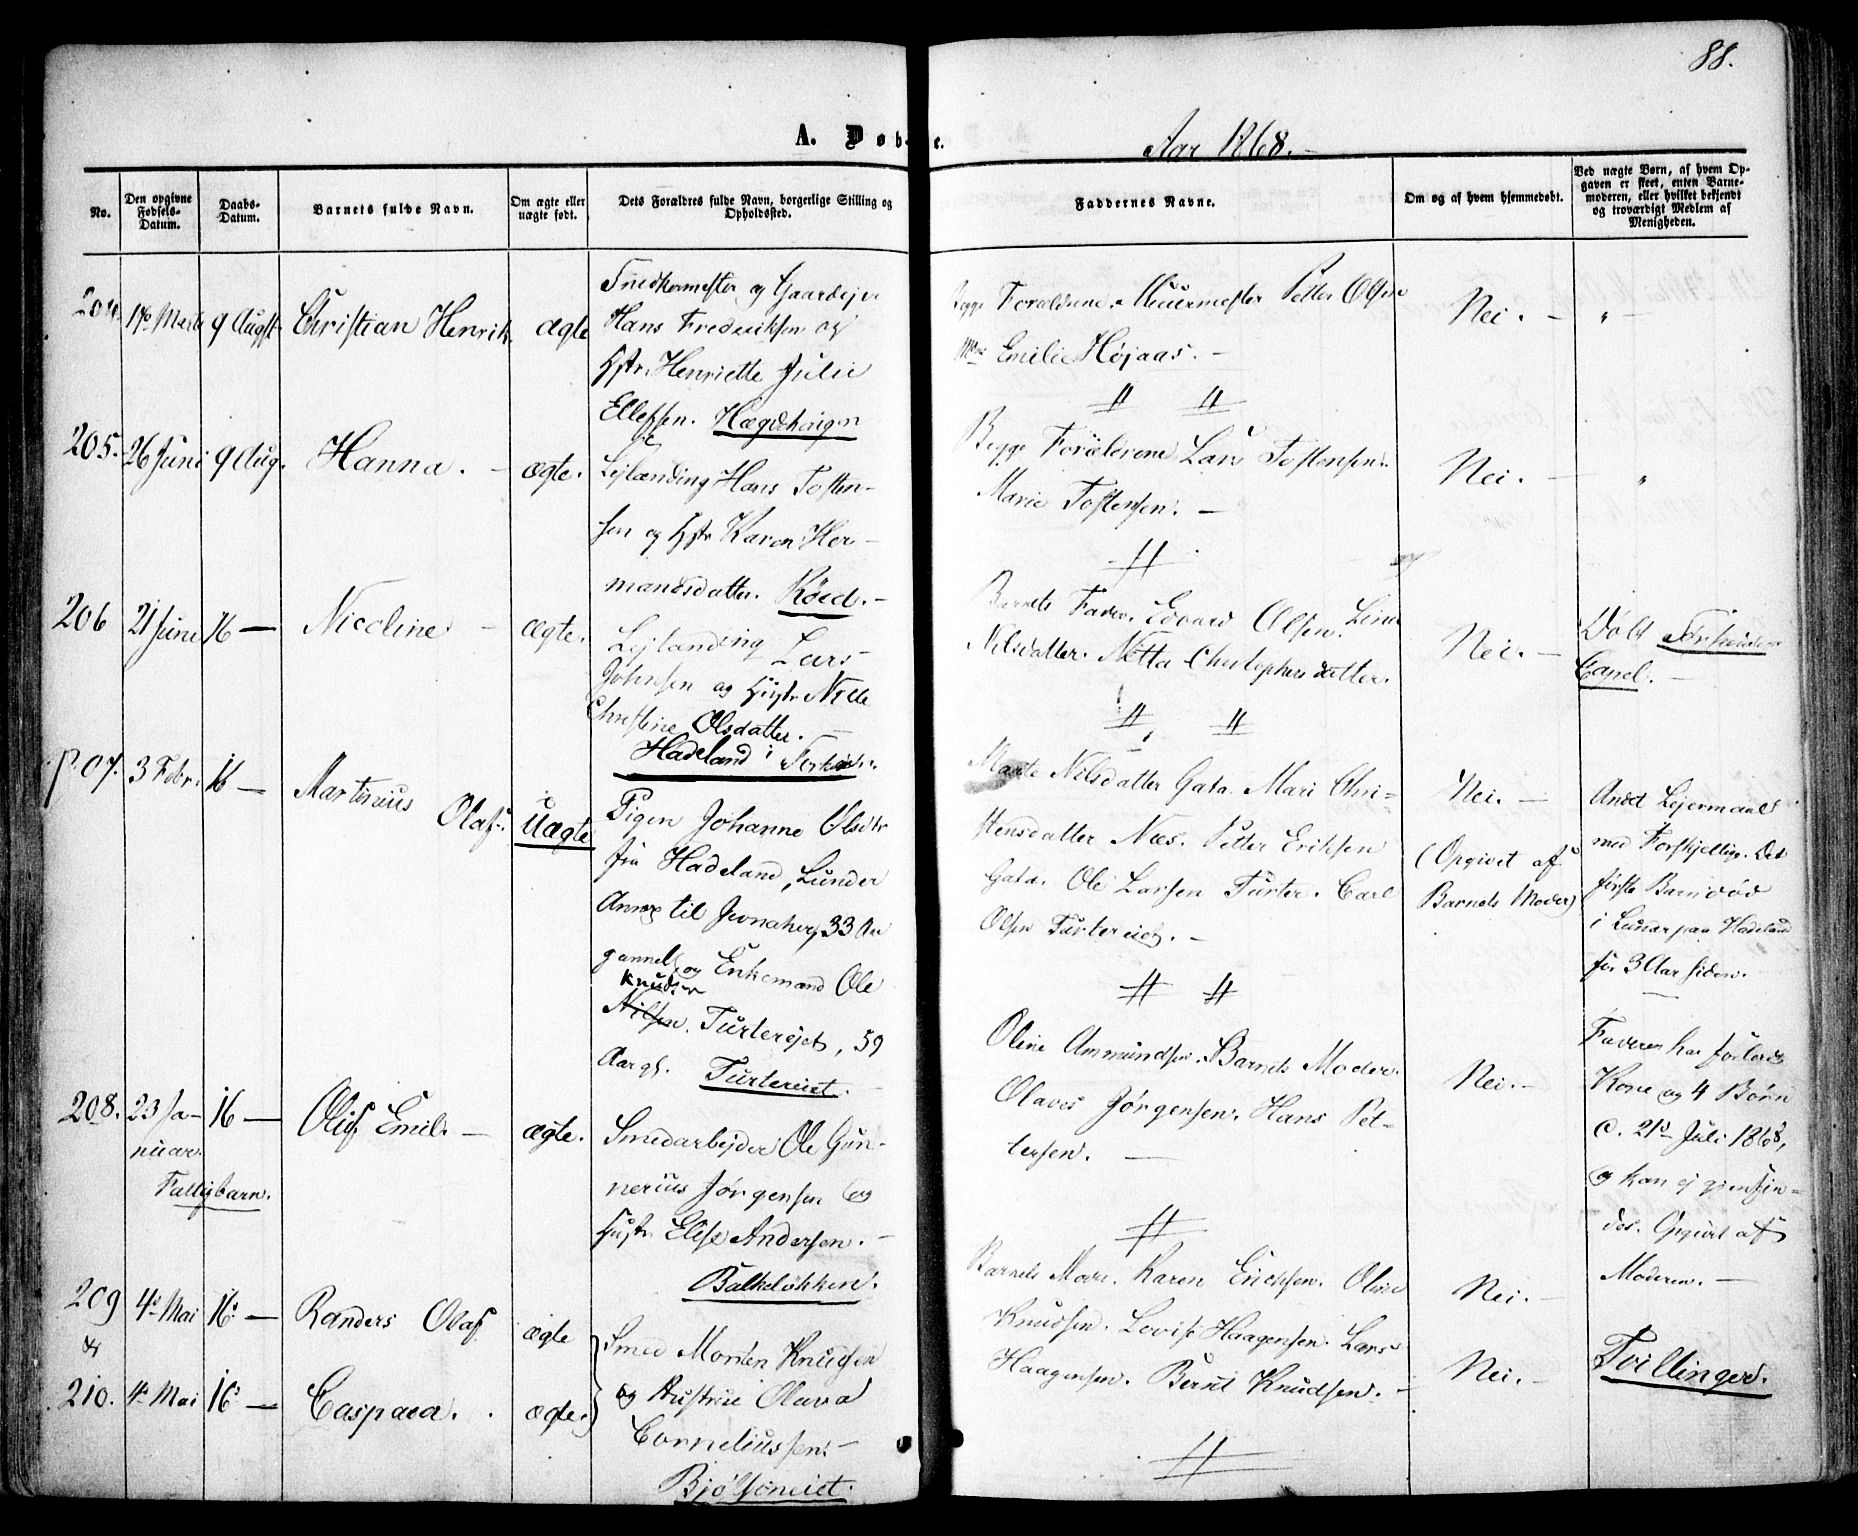 88.
A. Døbte.
Aar 1868.
No.
Den opgivne Fødsels-Datum.
Daabs-Datum.
Barnets fulde Navn.
Om ægte eller uægte født.
Dets Forældres fulde Navn, borgerlige Stilling og Opholdssted.
Faddernes Navne.
Om og af hvem hjemmedøbt.
Ved uægte Børn, af hvem Opgaven er skeet, enten Barnemoderen, eller hvilket bekjendt og troværdigt Medlem af Menigheden.
204. 9 Augst Christian Henrik. ægte
Snedkermester og Gaardejer
Hans Fredriksen og
Hstr. Henriette Julie
Ellefsen. Hægdehaugen
Begge Forældrene. Muurmester Petter Olsen
Emilie Højaas. —
Nei. — " —
205. 26 Juni 9 Aug. Hanna. — ægte.
Lejlænding Hans Tosten-
sen og Hstr Karen Her-
mandsdatter. Røed. —
Begge Forældrene Lars Tostensen.
Marie Tostensen. —
Nei. — "
206 21 Juni 16 — Nicoline — ægte.
Lejlænding Lars
Johnsen og Hustr Nille
Christine Olsdatter. —
Hadeland i
Barnets Fader. Edvard Olsen. Line
Nilsdatter. Netta Christophersdatter.
Nei. —
Døbt
Capel. —
207. 3 Febr. 16 — Martinius Olaf. Uægte
Pigen Johanne Olsdtr
fra Hadeland, Lunder
Annex til Jevnaker, 33 Aar
gammel, og Enkemand Ole
Knudsen
Nilsen. Turterøjet, 59
Aar gl. Turtereiet. —
Marte Nilsdatter Gata. Mari Chri-
stensdatter Næs. Petter Eriksen
Gata. Ole Larsen Turter. Carl
Olsen Turtereiet. —
Nei. —
(Opgivet af
Barnets Moder)
Andet Lejermaal
med Forskjellige. Det
første Barn død
i Lunder paa Hadeland
for 3 Aar siden.
208. 23 Ja-
nuar.
Fattigbarn.
16 — Oluf Emil. — ægte.
Smedarbejder Ole Gun-
nerius Jørgensen og
Hustr. Elise Andersen. —
Balkeløkken.
Oline Ammundsen. Barnets Moder.
Olaves Jørgensen. Hans Pet-
tersen. —
Nei. —
Faderen har forladt
Kone og 4 Børn
c. 21de Juli 1868,
og kan ej gjenfin-
des. Opgivet af
Moderen. —
209 4de Mai 16 — Randers Olaf ægte
&
210. 4 Mai 16 — Caspara. ægte.
Smed Morten Knudsen
og Hustrue Olava
Corneliussen. —
Bjølseneiet.
Barnets Moder. Karen Erichsen. Oline
Knudsen. Lovise Haagensen. Lars
Haagensen. Bernt Knudsen. —
Nei. —
Nei. —
Tvillinger.